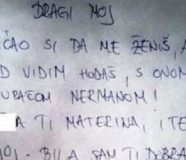 DRAGI MOJ
ČAO SI DA ME ŽENIŠ, A
D VIDIM HODAŠ, S ONOM
UPAČOM NERMANOM!
A TI MATERINA, I TE
OJ. BILA SAM TI DOBRA